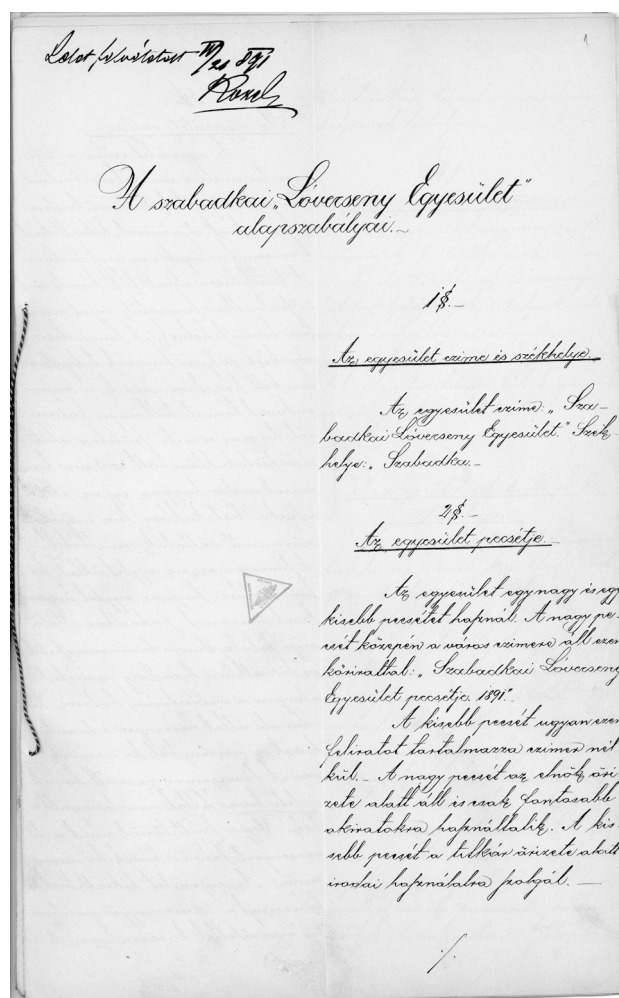 1
III/20 891
A szabadkai „Lóverseny Egyesület"
alapszabályai.~
1 §.–
Az egyesület czime és székhelye.
Az egyesület czime: „Sza–
badkai Lóverseny Egyesület." Szék-
helye: „Szabadka.–
2 §.–
Az egyesület pecsétje.–
Az egyesület egy nagy és egy
kisebb pecsétet használ. A nagy pe-
csét közepén a város czimere áll ezen
körirattal: „Szabadkai Lóverseny
Egyesület pecsétje. 1891".
A kisebb pecsét ugyan ezen
feliratot tartalmazza czimer nél
kül. – A nagy pecsét az elnök őri
zete alatt áll és csak fontosabb
akiratokra használlatik. A kis-
sebb pecsét a titkár őrizete alatt
irodai használatra szolgál. —
./.